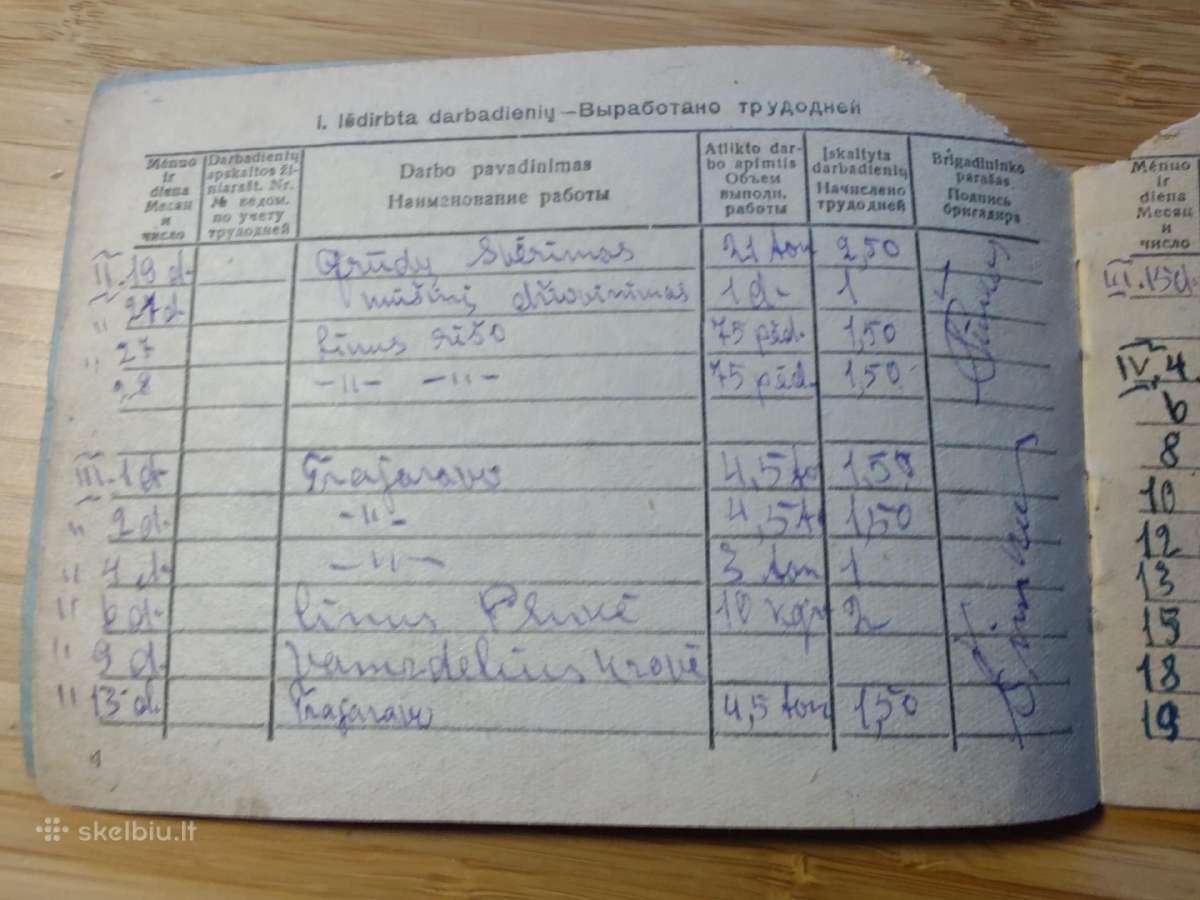 I. Išdirbta darbadienių — Выработано трудодней
Mėnuo ir diena Месяц и число
Darbadienių apskaitos žiniarašt. Nr. № ведом. по учету трудодней
Darbo pavadinimas Наименование работы
Atlikto darbo apimtis Объем выполн. работы
Įskaityta darbadienių Начислено трудодней
Brigadininko parašas Подпись бригадира
II. 19 d. Grūdų svėrimas 21 ton 2,50
" 27 d. džiovinimas 1 d. 1
" 27 Linus rišo 75 pėd. 1,50
28 —"— —"— 75 pėd. 1,50
III. 1 d. 4,5 to 1,50
" 2 d. —"— 4,5 to 1,50
" 4 d. —"— 3 ton 1
" 6 d. linus 10 kgr 2
" 9 d. krovė
" 13 d. 4,5 ton 1,50
Mėnuo ir diena Месяц и число
III. 15 d.
IV. 4
6
8
10
12
13
15
18
19
skelbiu.lt